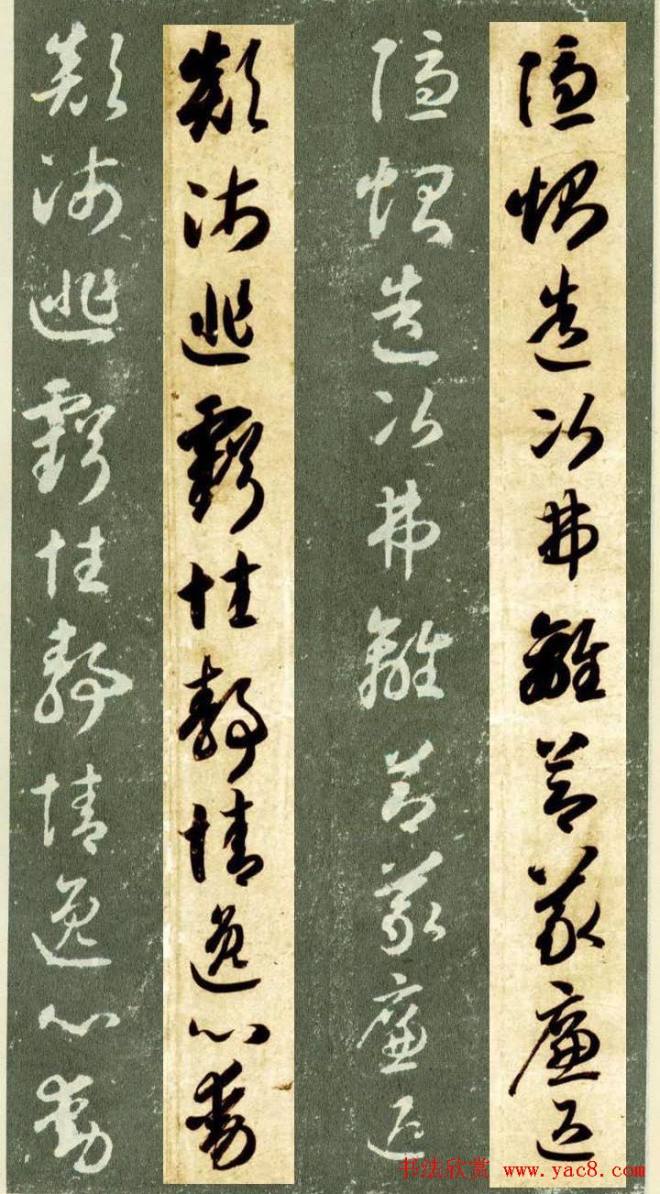 隱惻造次弗離節義廉退
隱惻造次弗離節義廉退
顛沛匪虧性靜情逸心動
顛沛匪虧性靜情逸心動
书法欣赏 www.yac8.com